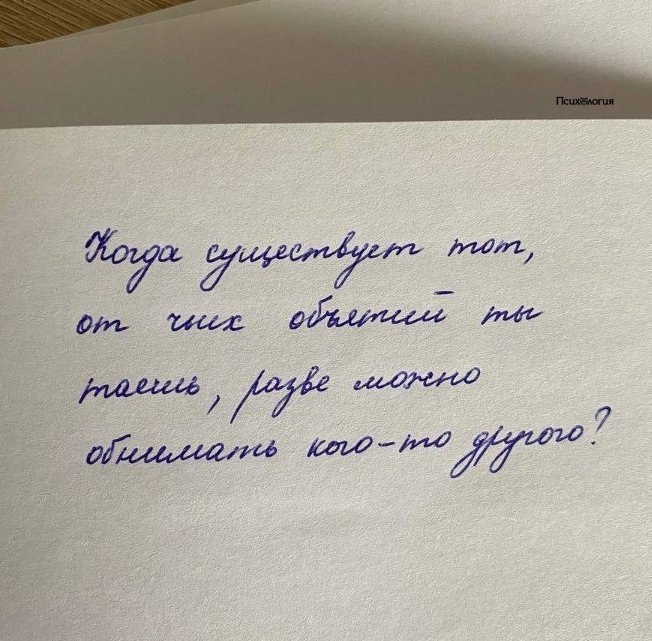 Психология
Когда существует тот,
от чьих объятий ты
таешь, разве можно
обнимать кого-то другого?